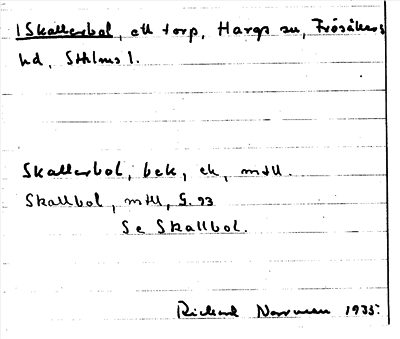 1 Skallerbol, ett torp, Hargs sn, Frösåkers
hd, Sthlms l.
Skallerbol, bek, ek, mtll.
Skallbol, mtll, G. 93
Se Skallbol.
Richard Norrman 1935.